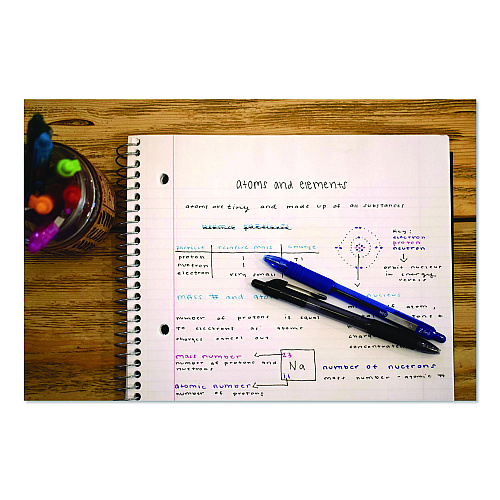 atoms and elements
atoms are tiny and made up of all substances
particle relative mass charge
proton 1 +1
nuetron 1
electron very small
Key:
electron
proton
neutron
orbit nucleus
in energy
levels
mass # and
nucleus
number of protons is equal
to electrons as atoms
charges cancel out
atom,
concentrated
mass number
number of protons and
nuetrons
23
Na
11
atomic number
number of protons
number of nuetrons
mass number - atomic #